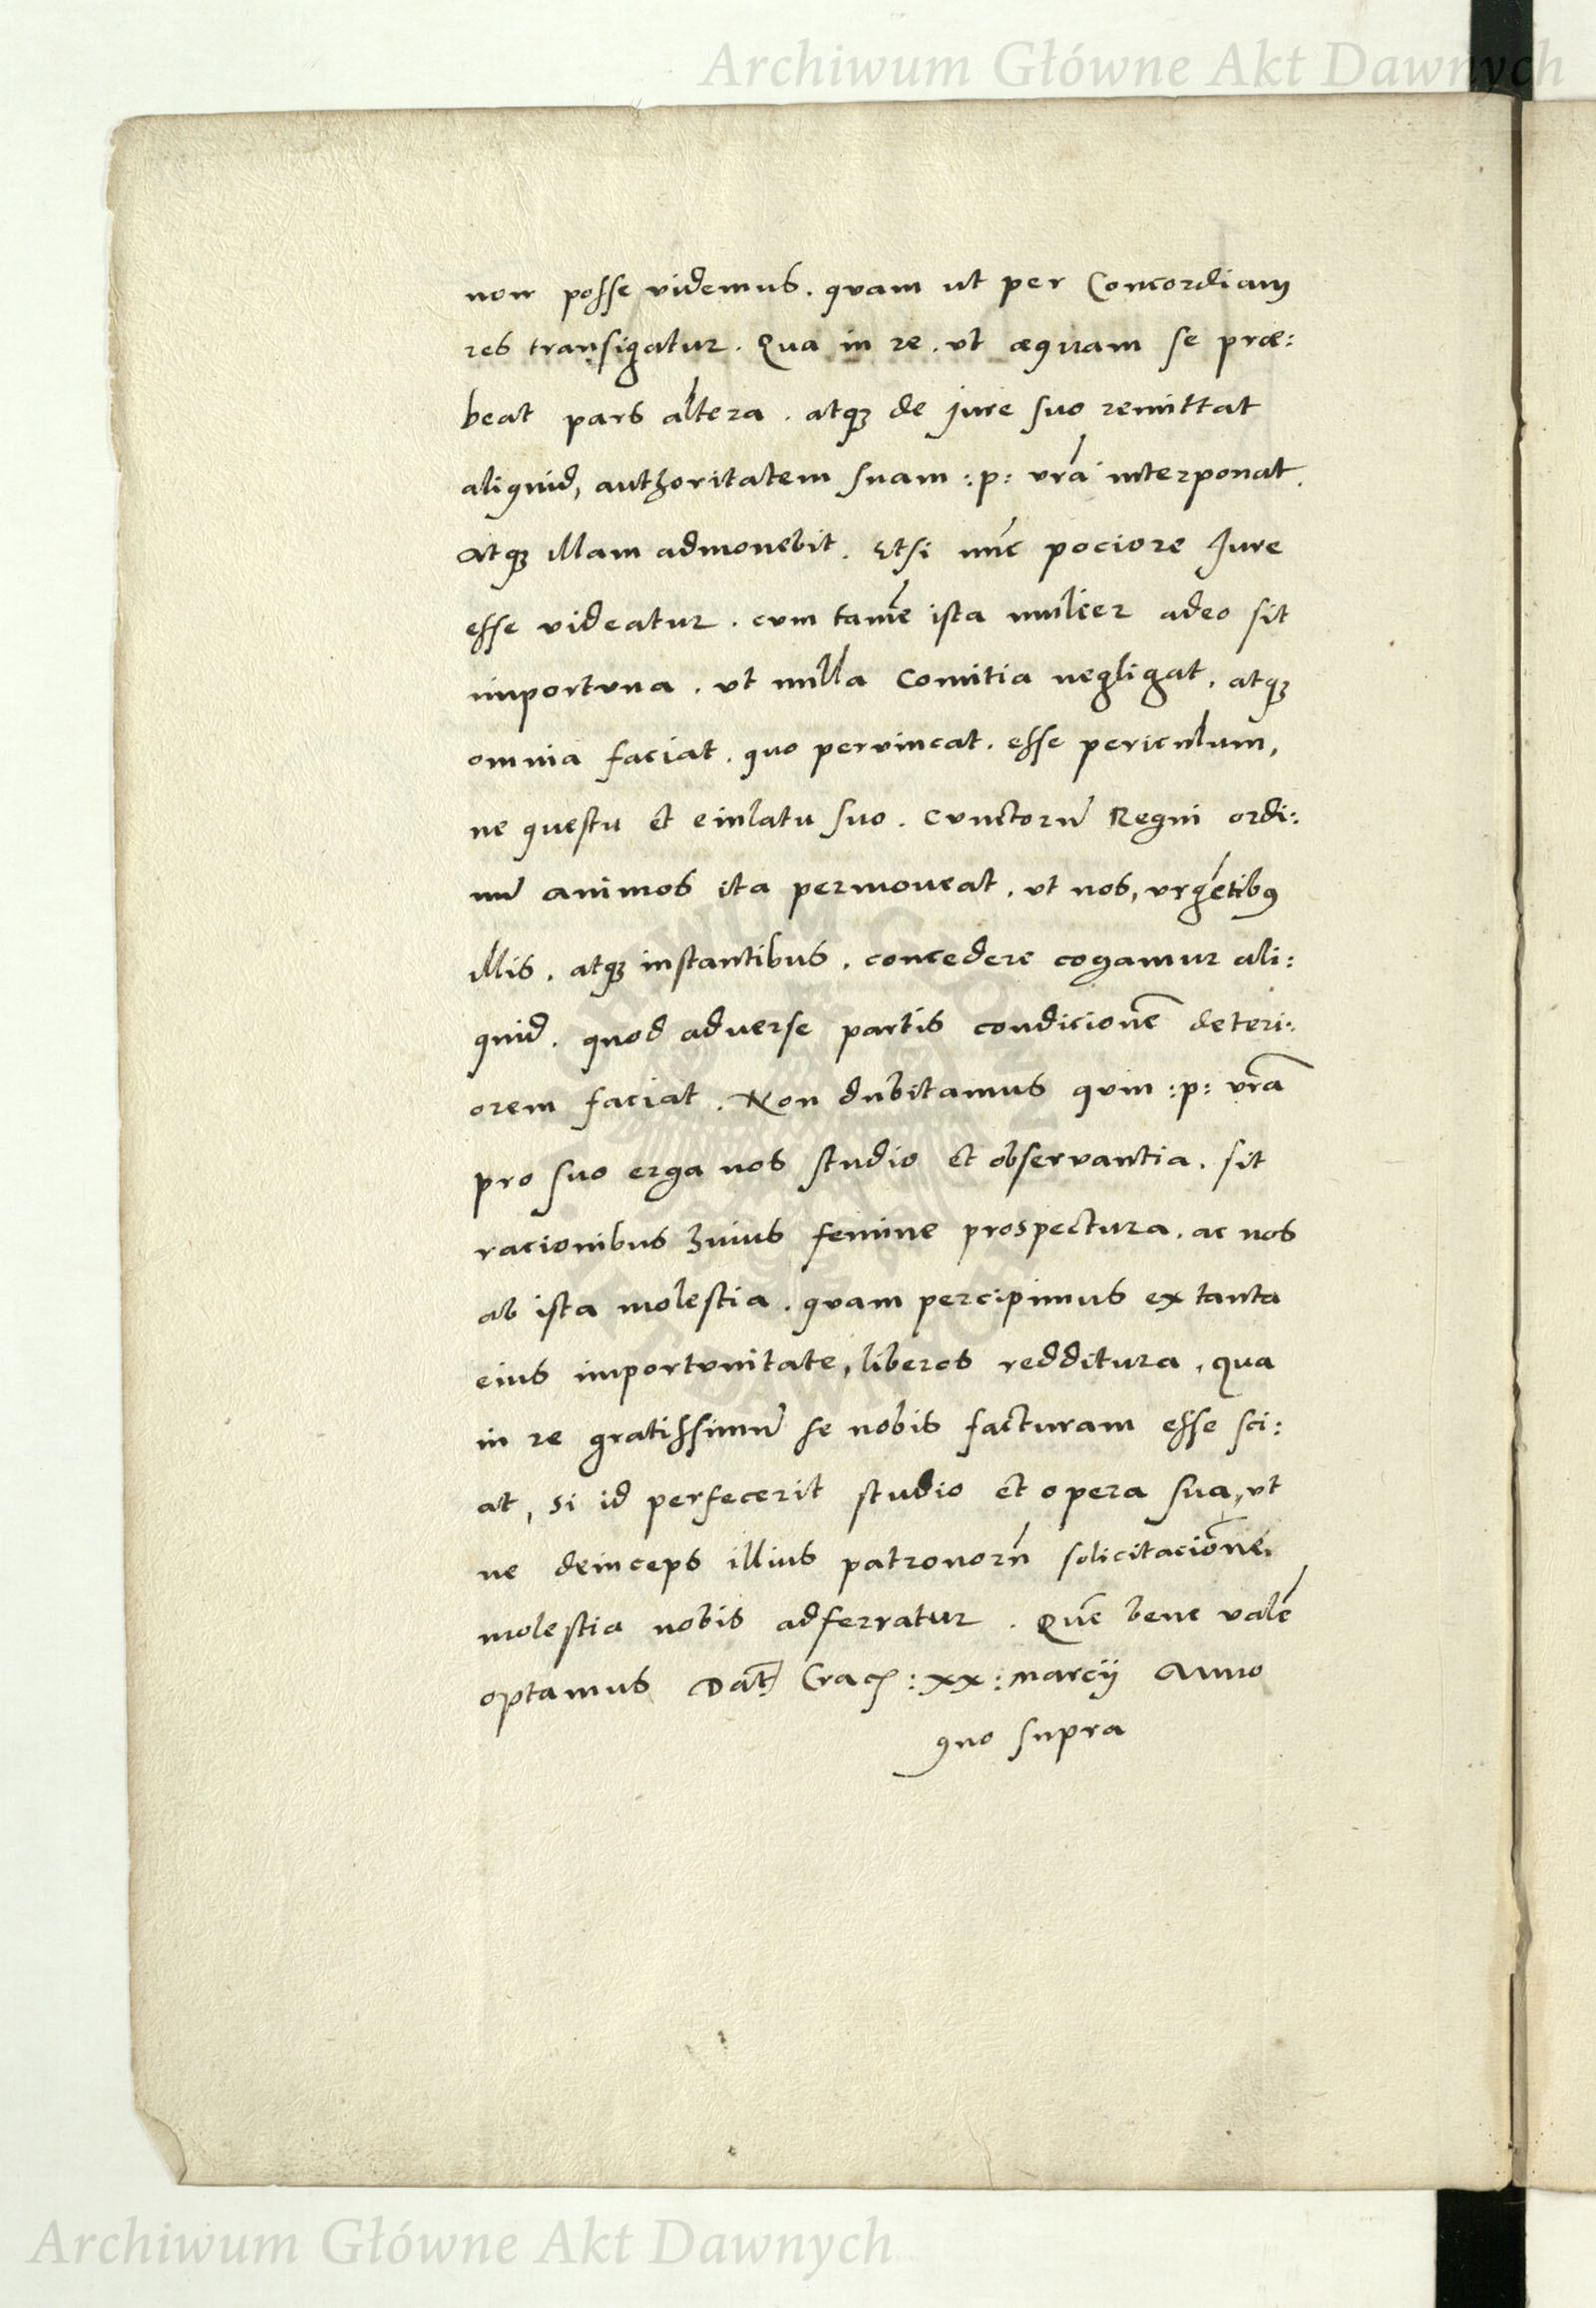 Archiwum Główne Akt Dawnych
non posse videmus. quam ut per Concordiam
res transigatur. Qua in re. ut æquam se præ:
beat pars altera. atqꝫ de jure suo remittat
aliquid, authoritatem suam :p: vrã interponat.
atqꝫ illam admonebit. Etsi nũc pociore Jure
esse videatur. cum tamẽ ista mulier adeo sit
importuna. ut nulla Comitia negligat. atqꝫ
omnia faciat. quo pervincat. esse periculum,
ne questu et eiulatu suo. cunctorũ Regni ordi:
nũ animos ita permoveat. ut nos, vrgẽtibꝰ
illis. atqꝫ instantibus. concedere cogamur ali:
quid. quod adverse partis condicionẽ deteri:
orem faciat. Non dubitamus quin :p: vrã
pro suo erga nos studio et observantia. sit
racionibus huius femine prospectura. ac nos
ab ista molestia. quam percipimus ex tanta
eius importunitate, liberos redditura, qua
in re gratissimũ se nobis facturam esse sci:
at, si id perfecerit studio et opera sua, ut
ne deinceps illius patronorũ solicitaciõne.
molestia nobis adferratur. Quẽ bene valẽ
optamus Dat Crac :xx: marcij Anno
quo supra
Archiwum Główne Akt Dawnych